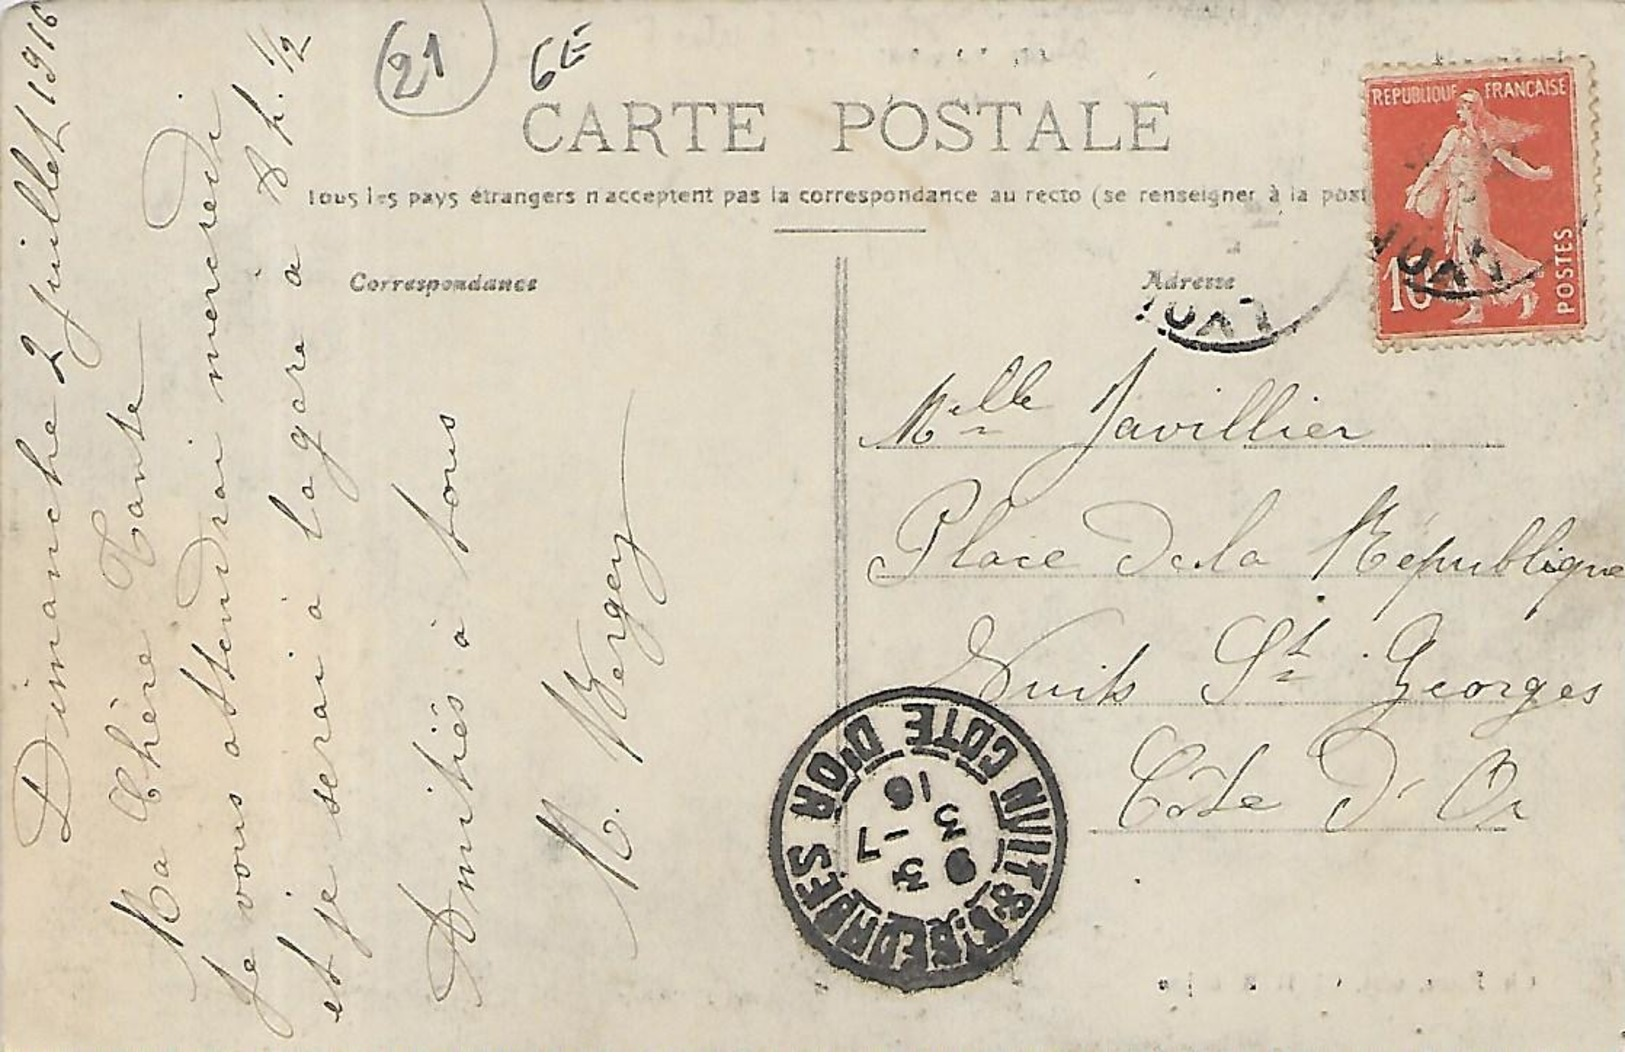 21
6E
CARTE POSTALE
Tous les pays étrangers n'acceptent pas la correspondance au recto (se renseigner à la post
Correspondance
Adresse
REPUBLIQUE FRANCAISE
10
POSTES
Dimanche 2 Juillet 1916
Ma Chère Tante
Je vous attendrai mercredi
et je serai à la gare à 8 h. 1/2
Amitiés à tous
M. Vergey
Mlle Javillier
Place de la République
Nuits St Georges
Côte d'Or
LYON
LYON
NUITS-S-GEORGES COTE D'OR
9 3
3 -7
16